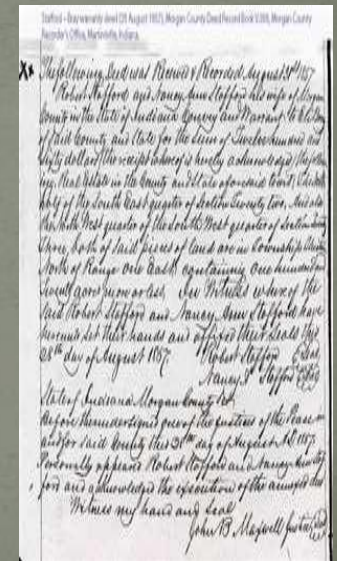 Stafford – Bray warranty deed (28 August 1857), Morgan County Deed Record Book V:388, Morgan County
Recorder's Office, Martinsville, Indiana.
X
The following Deed was Received & Recorded August 31st 1857
Robert Stafford and Nancy Ann Stafford his wife of Morgan
County in the State of Indiana Convey and Warrant to
of said County and State for the sum of Twelve hundred and
fifty dollars the receipt whereof is hereby acknowledged the follow
ing Real Estate in the County and State aforesaid to wit
half of the South East quarter of Section Twenty two, And also
the North West quarter of the South West quarter of Section Twenty
three, both of said pieces of land are in Township
North of Range one East, containing one hundred and
twenty acres more or less. In Witness whereof the
said Robert Stafford and Nancy Ann Stafford, have
hereunto set their hands and affixed their seals this
28th day of August 1857. Robert Stafford
Nancy A Stafford
State of Indiana Morgan County
Before the undersigned one of the Justices of the Peace
and for said County this 28th day of August 1857.
Personally appeared Robert Stafford and Nancy Ann Staf
ford and acknowledged the execution of the annexed deed
Witness my hand and Seal
John B Maxwell Justice